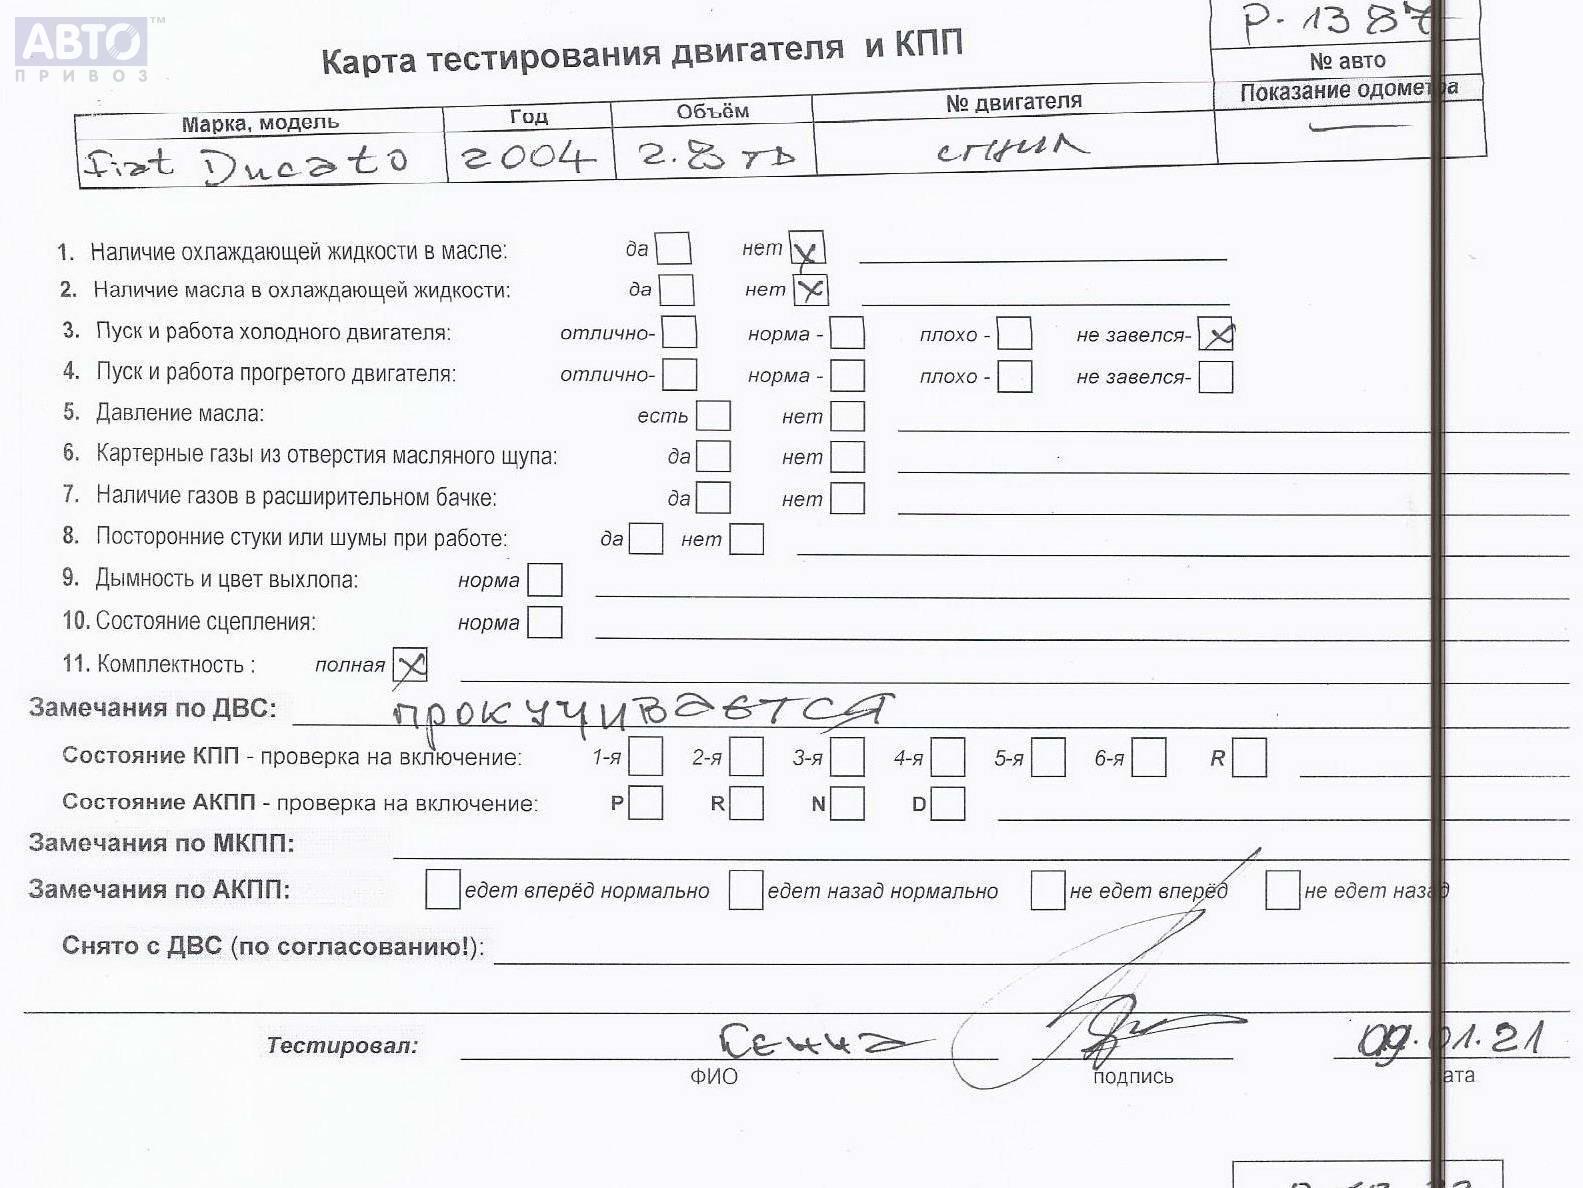 АВТО™
ПРИВОЗ
Р-1387
Карта тестирования двигателя и КПП
№ авто
Марка, модель Год Объём № двигателя Показание одометра
Fiat Ducato 2004 2.8 тд сгнил —
1. Наличие охлаждающей жидкости в масле: да нет x
2. Наличие масла в охлаждающей жидкости: да нет x
3. Пуск и работа холодного двигателя: отлично- норма - плохо - не завелся- x
4. Пуск и работа прогретого двигателя: отлично- норма - плохо - не завелся-
5. Давление масла: есть нет
6. Картерные газы из отверстия масляного щупа: да нет
7. Наличие газов в расширительном бачке: да нет
8. Посторонние стуки или шумы при работе: да нет
9. Дымность и цвет выхлопа: норма
10. Состояние сцепления: норма
11. Комплектность : полная x
Замечания по ДВС: прокучивается
Состояние КПП - проверка на включение: 1-я 2-я 3-я 4-я 5-я 6-я R
Состояние АКПП - проверка на включение: P R N D
Замечания по МКПП:
Замечания по АКПП: едет вперёд нормально едет назад нормально не едет вперёд не едет назад
Снято с ДВС (по согласованию!):
Тестировал: 09.01.21
ФИО подпись дата